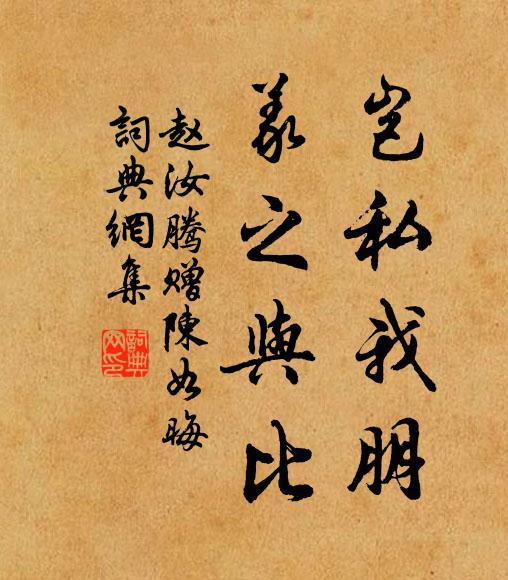 豈私我朋
義之與比
赵汝腾贈陳如晦
詞典網集
詞典
网印